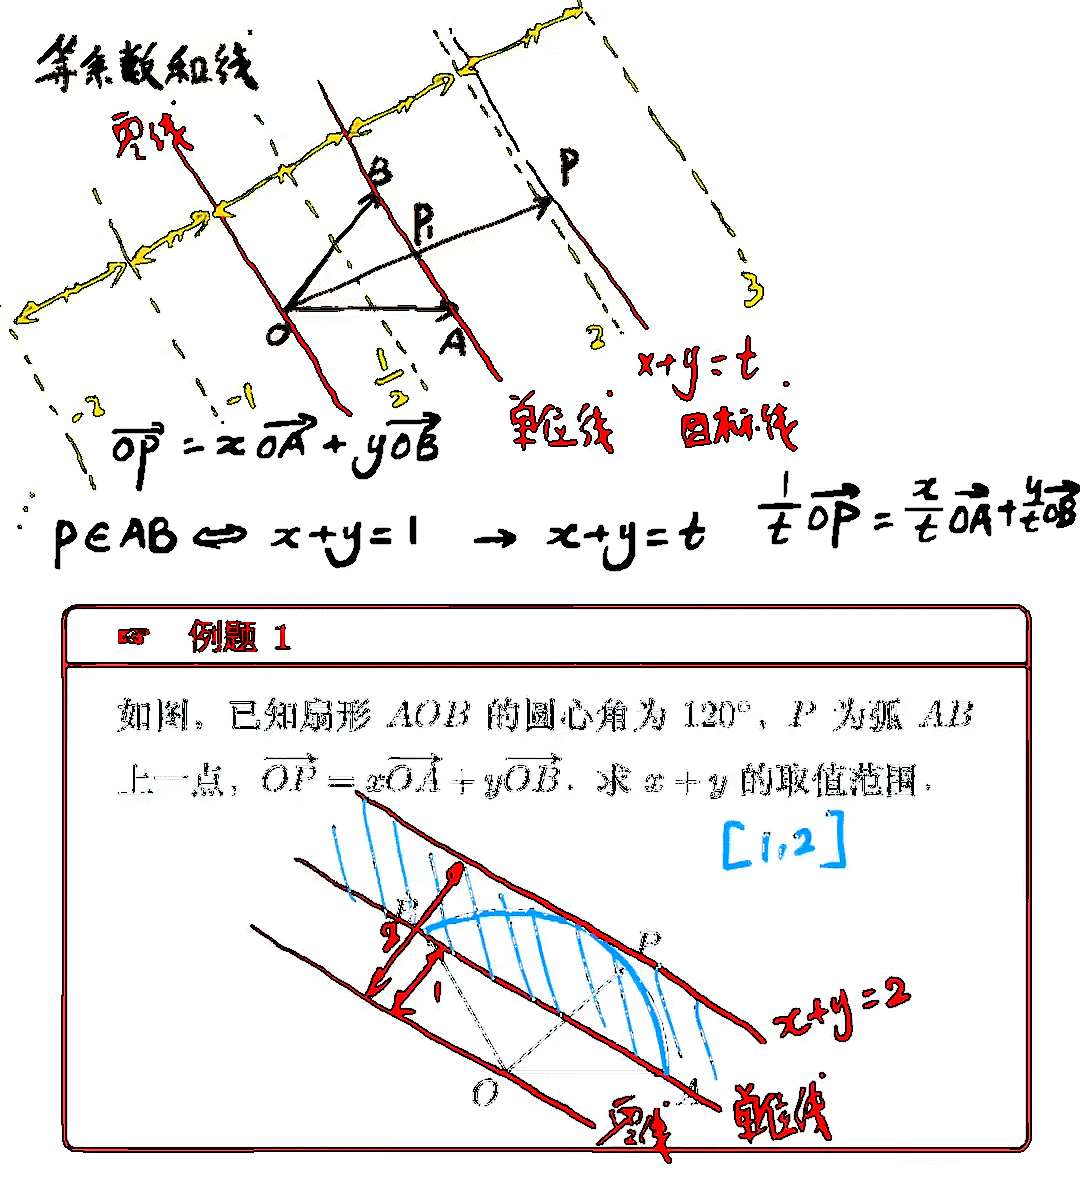 等系数和线
零线
B
P
P₁
O
A
-2
-1
1/2
2
3
x+y=t
单位线
目标线
$\overrightarrow{OP} = x\overrightarrow{OA} + y\overrightarrow{OB}$
P∈AB ⇔ x+y=1 → x+y=t $\frac{1}{t}\overrightarrow{OP} = \frac{x}{t}\overrightarrow{OA} + \frac{y}{t}\overrightarrow{OB}$
☞ 例题 1
如图，已知扇形 AOB 的圆心角为 120°，P 为弧 AB
上一点，$\overrightarrow{OP} = x\overrightarrow{OA} + y\overrightarrow{OB}$. 求 x + y 的取值范围.
[1,2]
B
2
P
1
x+y=2
O
A
零线
单位线